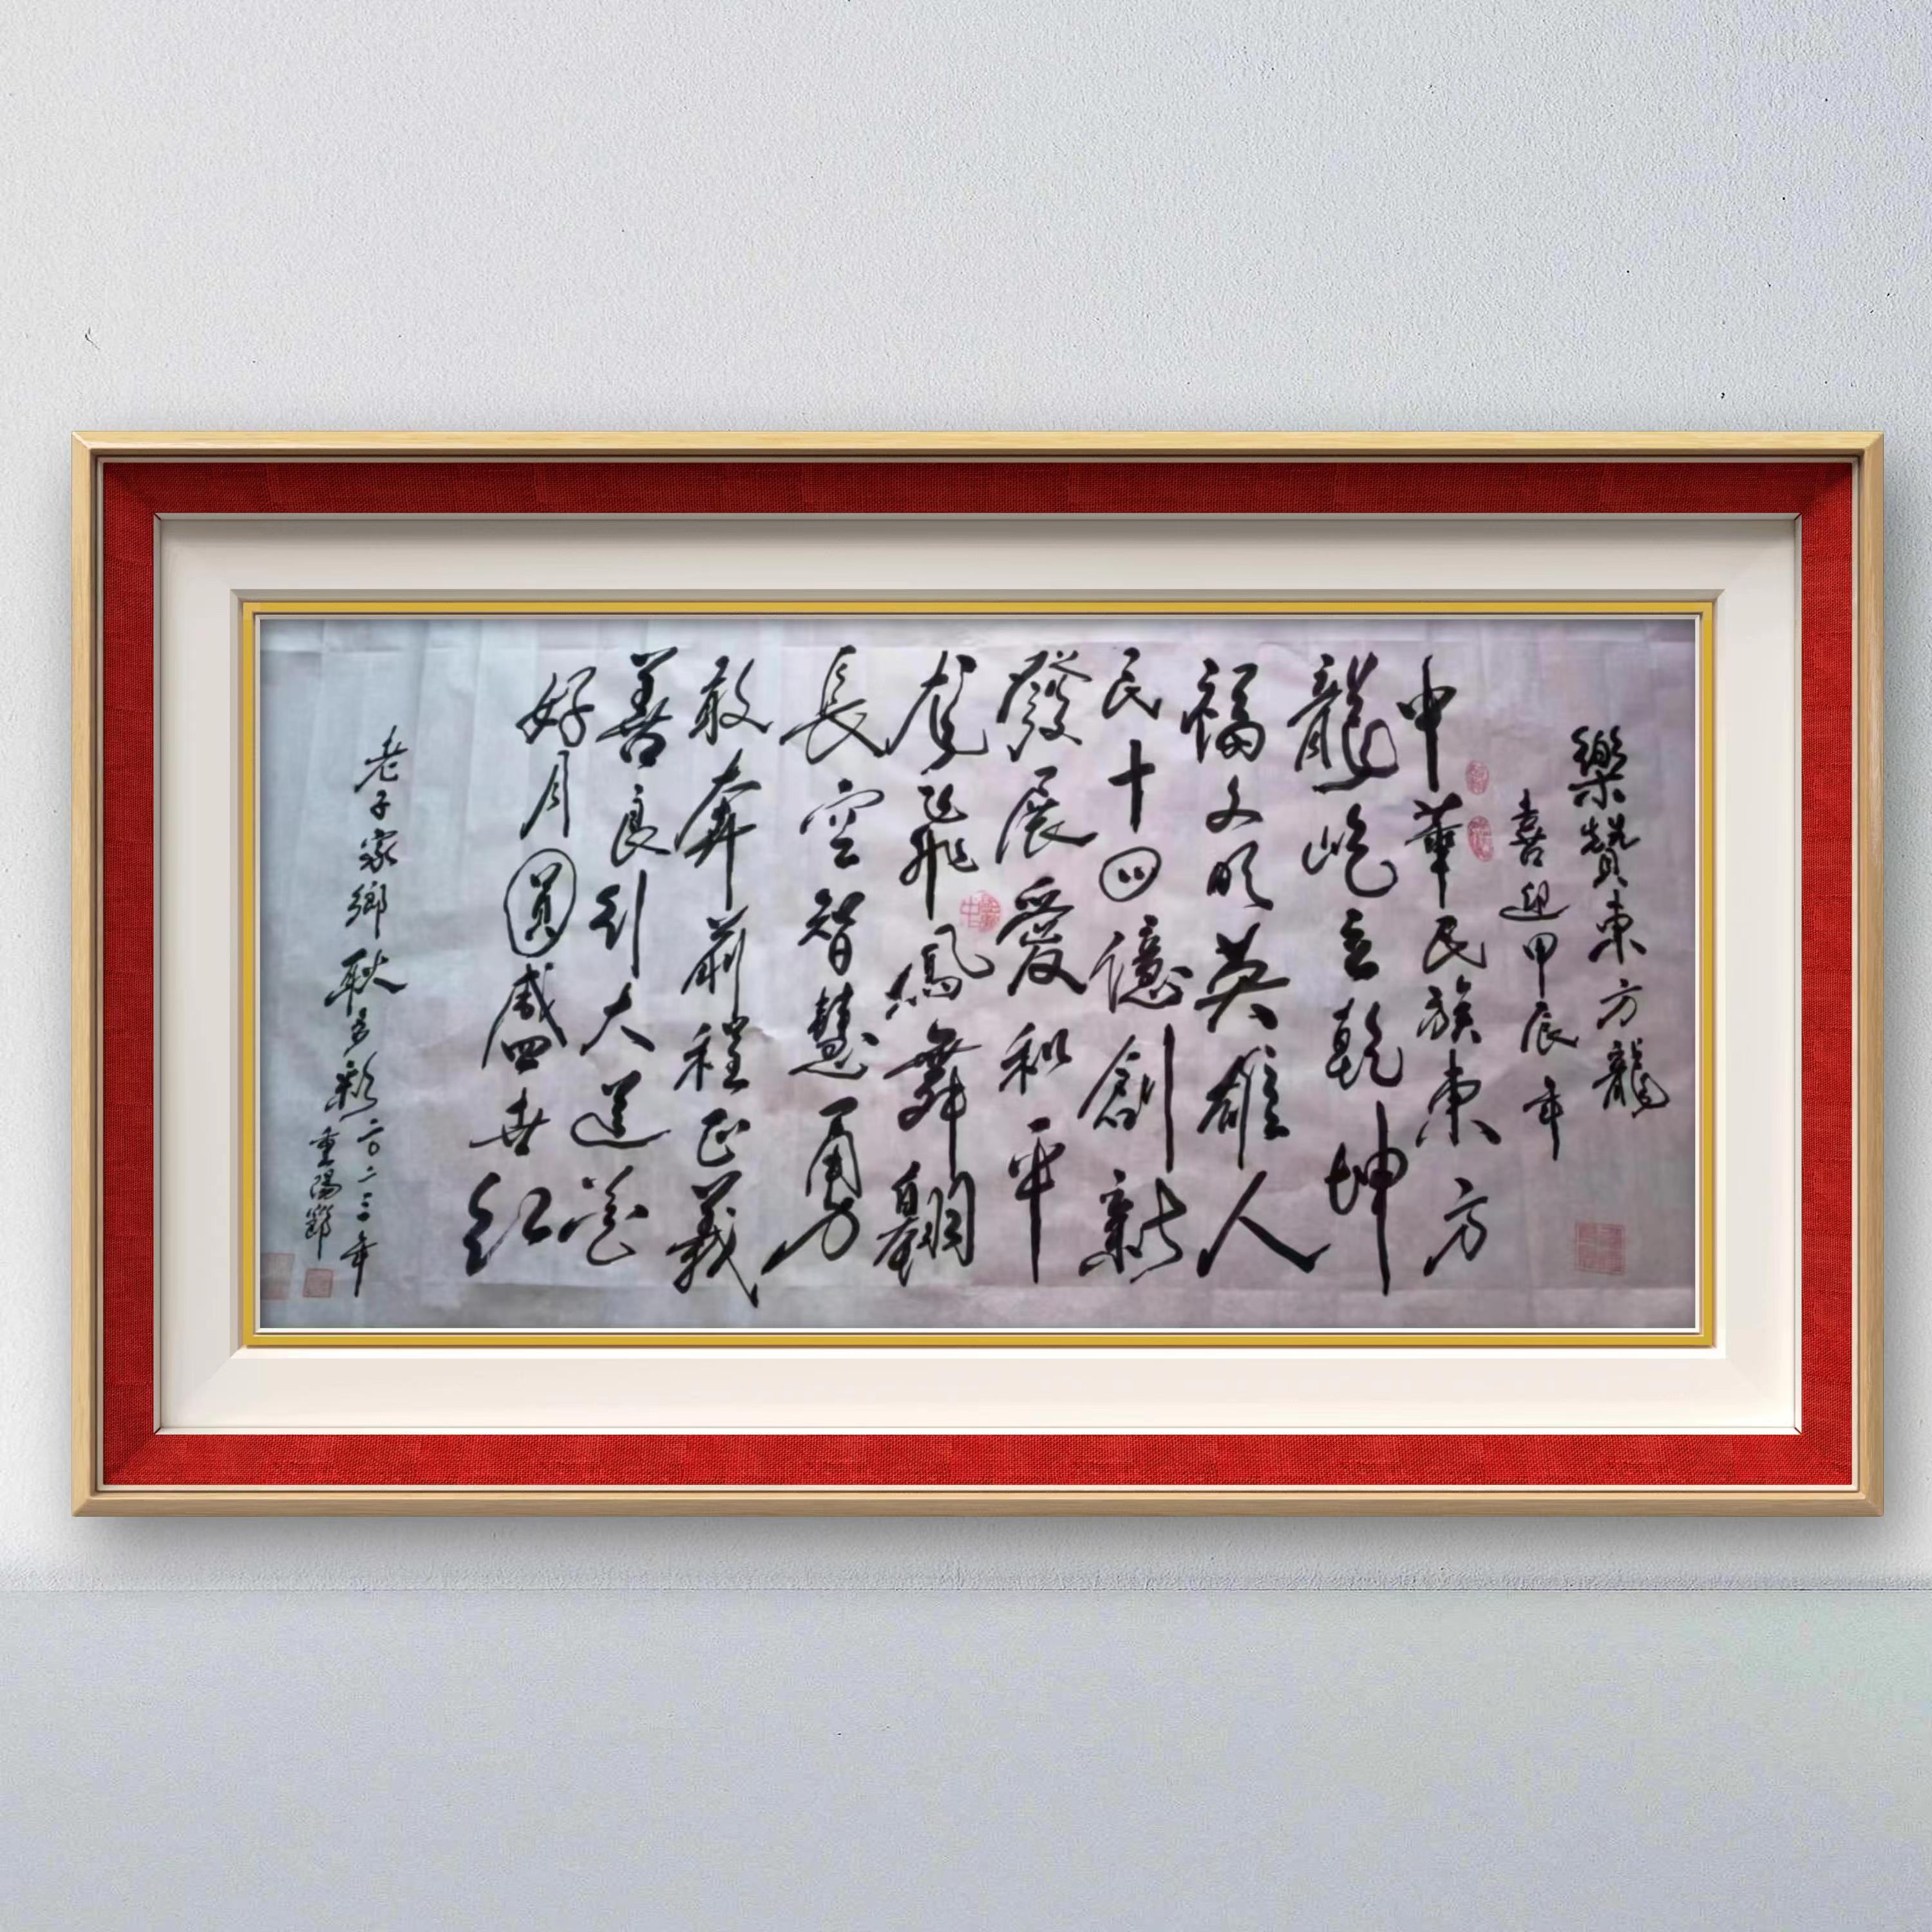 樂贊東方龍
喜迎甲辰年
中華民族東方
龍屹立乾坤
福文明英雄人
民十四億創新
發展愛和平
龙飛鳳舞翱
長空智慧勇
敢奔前程正義
善良引大道花
好月圓盛世红
老子家鄉耿多彩二〇二三年
重陽節